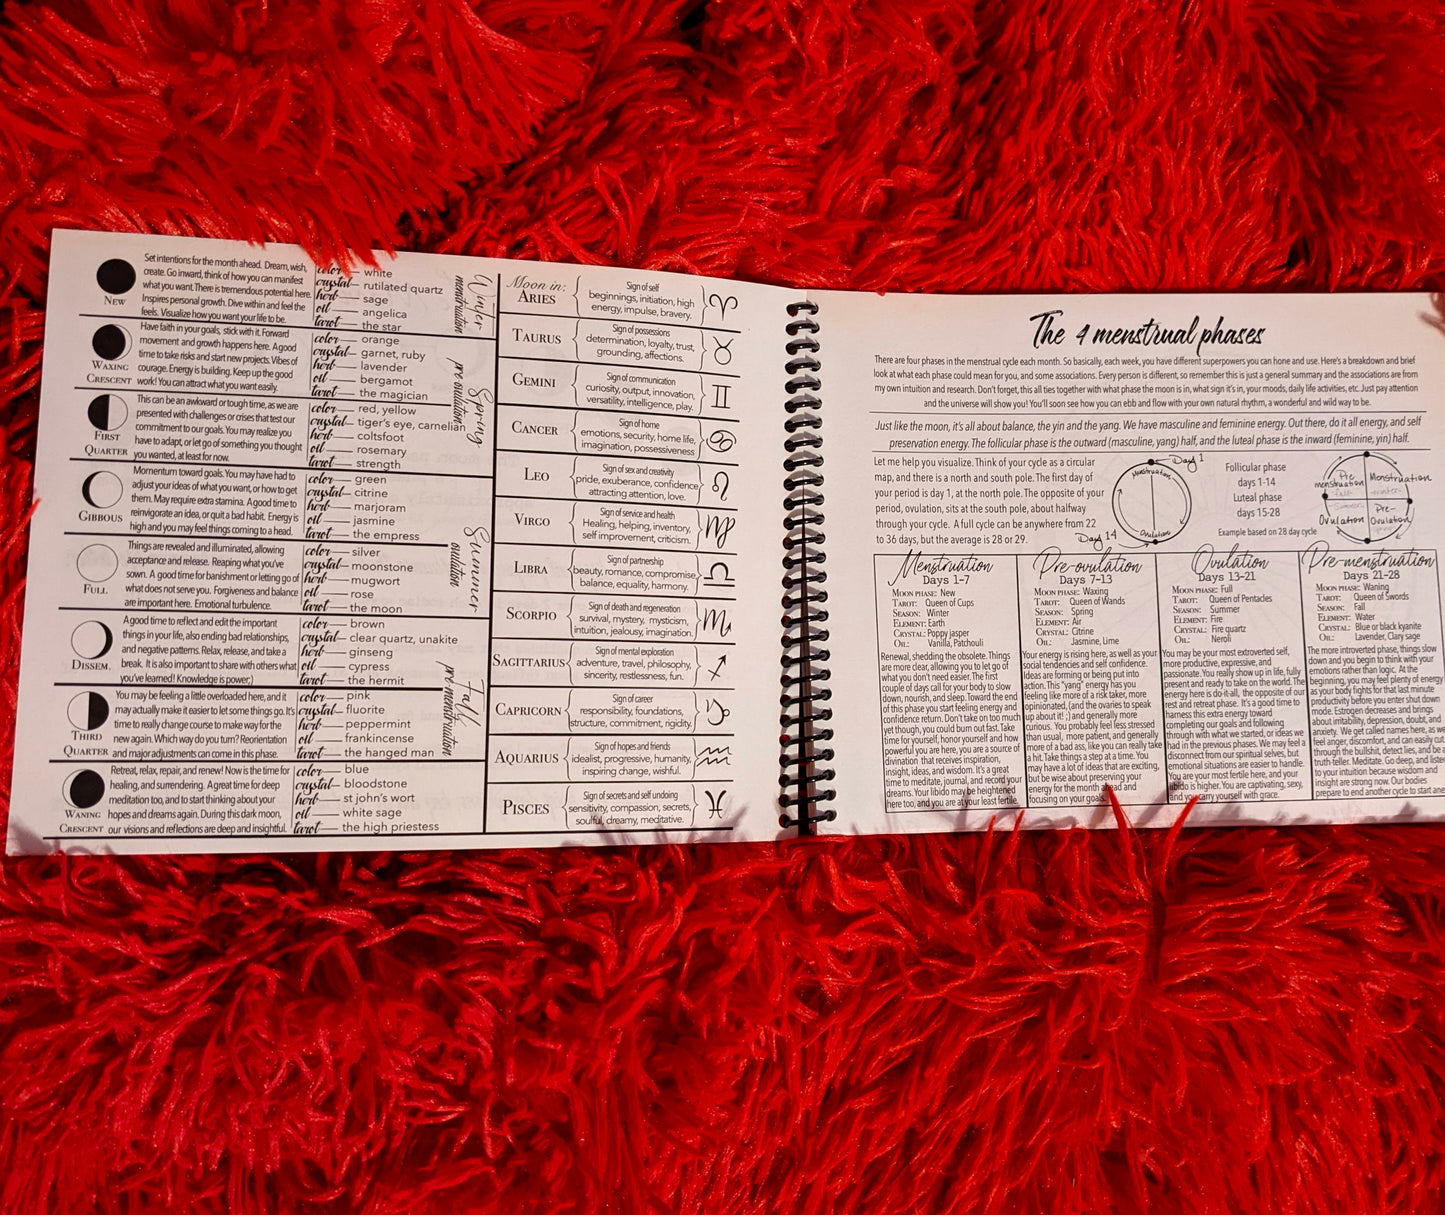 NEW
Set intentions for the month ahead. Dream, wish,
create. Go inward, think of how you can manifest
what you want. There is tremendous potential here.
Inspires personal growth. Dive within and feel the
feels. Visualize how you want your life to be.
color — white
crystal — rutilated quartz
herb — sage
oil — angelica
tarot — the star
WAXING
CRESCENT
Have faith in your goals, stick with it. Forward
movement and growth happens here. A good
time to take risks and start new projects. Vibes of
courage. Energy is building. Keep up the good
work! You can attract what you want easily.
color — orange
crystal — garnet, ruby
herb — lavender
oil — bergamot
tarot — the magician
FIRST
QUARTER
This can be an awkward or tough time, as we are
presented with challenges or crises that test our
commitment to our goals. You may realize you
have to adapt, or let go of something you thought
you wanted, at least for now.
color — red, yellow
crystal — tiger's eye, carnelian
herb — coltsfoot
oil — rosemary
tarot — strength
GIBBOUS
Momentum toward goals. You may have had to
adjust your ideas of what you want, or how to get
them. May require extra stamina. A good time to
reinvigorate an idea, or quit a bad habit. Energy is
high and you may feel things coming to a head.
color — green
crystal — citrine
herb — marjoram
oil — jasmine
tarot — the empress
FULL
Things are revealed and illuminated, allowing
acceptance and release. Reaping what you've
sown. A good time for banishment or letting go of
what does not serve you. Forgiveness and balance
are important here. Emotional turbulence.
color — silver
crystal — moonstone
herb — mugwort
oil — rose
tarot — the moon
DISSEM.
A good time to reflect and edit the important
things in your life, also ending bad relationships,
and negative patterns. Relax, release, and take a
break. It is also important to share with others what
you've learned! Knowledge is power;)
color — brown
crystal — clear quartz, unakite
herb — ginseng
oil — cypress
tarot — the hermit
THIRD
QUARTER
You may be feeling a little overloaded here, and it
may actually make it easier to let some things go. It's
time to really change course to make way for the
new again. Which way do you turn? Reorientation
and major adjustments can come in this phase.
color — pink
crystal — fluorite
herb — peppermint
oil — frankincense
tarot — the hanged man
WANING
CRESCENT
Retreat, relax, repair, and renew! Now is the time for
healing, and surrendering. A great time for deep
meditation too, and to start thinking about your
hopes and dreams again. During this dark moon,
our visions and reflections are deep and insightful.
color — blue
crystal — bloodstone
herb — st john's wort
oil — white sage
tarot — the high priestess
Winter
menstruation
Spring
pre ovulation
Summer
ovulation
Fall
pre menstruation
Moon in:
ARIES
Sign of self
beginnings, initiation, high
energy, impulse, bravery.
TAURUS
Sign of possessions
determination, loyalty, trust,
grounding, affections.
GEMINI
Sign of communication
curiosity, output, innovation,
versatility, intelligence, play.
CANCER
Sign of home
emotions, security, home life,
imagination, possessiveness
LEO
Sign of sex and creativity
pride, exuberance, confidence
attracting attention, love.
VIRGO
Sign of service and health
Healing, helping, inventory,
self improvement, criticism.
LIBRA
Sign of partnership
beauty, romance, compromise,
balance, equality, harmony.
SCORPIO
Sign of death and regeneration
survival, mystery, mysticism,
intuition, jealousy, imagination.
SAGITTARIUS
Sign of mental exploration
adventure, travel, philosophy,
sincerity, restlessness, fun.
CAPRICORN
Sign of career
responsibility, foundations,
structure, commitment, rigidity.
AQUARIUS
Sign of hopes and friends
idealist, progressive, humanity,
inspiring change, wishful.
PISCES
Sign of secrets and self undoing
sensitivity, compassion, secrets,
soulful, dreamy, meditative.
The 4 menstrual phases
There are four phases in the menstrual cycle each month. So basically, each week, you have different superpowers you can hone and use. Here's a breakdown and brief
look at what each phase could mean for you, and some associations. Every person is different, so remember this is just a general summary and the associations are from
my own intuition and research. Don't forget, this all ties together with what phase the moon is in, what sign it's in, your moods, daily life activities, etc. Just pay attention
and the universe will show you! You'll soon see how you can ebb and flow with your own natural rhythm, a wonderful and wild way to be.
Just like the moon, it's all about balance, the yin and the yang. We have masculine and feminine energy. Out there, do it all energy, and self
preservation energy. The follicular phase is the outward (masculine, yang) half, and the luteal phase is the inward (feminine, yin) half.
Let me help you visualize. Think of your cycle as a circular
map, and there is a north and south pole. The first day of
your period is day 1, at the north pole. The opposite of your
period, ovulation, sits at the south pole, about halfway
through your cycle. A full cycle can be anywhere from 22
to 36 days, but the average is 28 or 29.
Day 1
Menstruation
Ovulation
Day 14
Follicular phase
days 1-14
Luteal phase
days 15-28
Example based on 28 day cycle
Pre
menstruation
fall
Menstruation
winter
Summer
Ovulation
Pre-
Ovulation
Menstruation
Days 1-7
MOON PHASE: New
TAROT: Queen of Cups
SEASON: Winter
ELEMENT: Earth
CRYSTAL: Poppy jasper
OIL: Vanilla, Patchouli
Renewal, shedding the obsolete. Things
are more clear, allowing you to let go of
what you don't need easier. The first
couple of days call for your body to slow
down, nourish, and sleep. Toward the end
of this phase you start feeling energy and
confidence return. Don't take on too much
yet though, you could burn out fast. Take
time for yourself, honor yourself and how
powerful you are here, you are a source of
divination that receives inspiration,
insight, ideas, and wisdom. It's a great
time to meditate, journal, and record your
dreams. Your libido may be heightened
here too, and you are at your least fertile.
Pre-ovulation
Days 7-13
MOON PHASE: Waxing
TAROT: Queen of Wands
SEASON: Spring
ELEMENT: Air
CRYSTAL: Citrine
OIL: Jasmine, Lime
Your energy is rising here, as well as your
social tendencies and self confidence.
Ideas are forming or being put into
action. This "yang" energy has you
feeling like more of a risk taker, more
opinionated, (and the ovaries to speak
up about it! ;) and generally more
curious. You probably feel less stressed
than usual, more patient, and generally
more of a bad ass, like you can really take
a hit. Take things a step at a time. You
may have a lot of ideas that are exciting,
but be wise about preserving your
energy for the month ahead and
focusing on your goals.
Ovulation
Days 13-21
MOON PHASE: Full
TAROT: Queen of Pentacles
SEASON: Summer
ELEMENT: Fire
CRYSTAL: Fire quartz
OIL: Neroli
You may be your most extroverted self,
more productive, expressive, and
passionate. You really show up in life, fully
present and ready to take on the world. The
energy here is do-it-all, the opposite of our
rest and retreat phase. It's a good time to
harness this extra energy toward
completing our goals and following
through with what we started, or ideas we
had in the previous phases. We may feel a
disconnect from our spiritual selves, but
emotional situations are easier to handle.
You are your most fertile here, and your
libido is higher. You are captivating, sexy,
and you carry yourself with grace.
Pre-menstruation
Days 21-28
MOON PHASE: Waning
TAROT: Queen of Swords
SEASON: Fall
ELEMENT: Water
CRYSTAL: Blue or black kyanite
OIL: Lavender, Clary sage
The more introverted phase, things slow
down and you begin to think with your
emotions rather than logic. At the
beginning, you may feel plenty of energy
as your body fights for that last minute
productivity before you enter shut down
mode. Estrogen decreases and brings
about irritability, depression, doubt, and
anxiety. We get called names here, as we
feel anger, discomfort, and can easily cut
through the bullshit, detect lies, and be a
truth-teller. Meditate. Go deep, and listen
to your intuition because wisdom and
insight are strong now. Our bodies
prepare to end another cycle to start anew